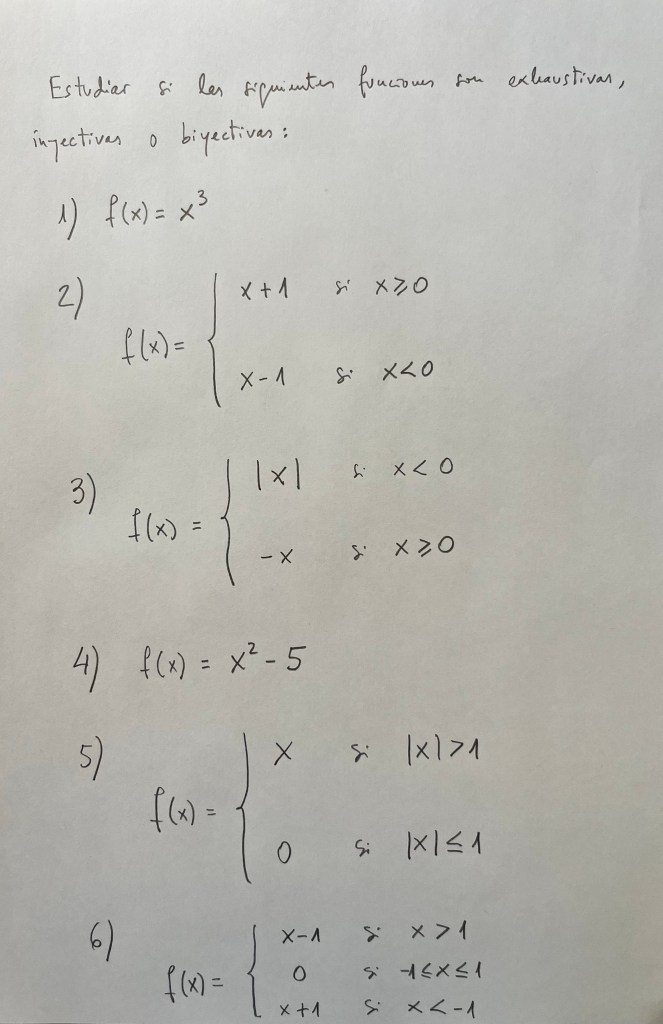 Estudiar si las siguientes funciones son exhaustivas,
inyectivas o biyectivas:
1) f(x) = x³
2) f(x) = { x+1 si x≥0
x-1 si x<0
3) f(x) = { |x| si x<0
-x si x≥0
4) f(x) = x² - 5
5) f(x) = { x si |x|>1
0 si |x|≤1
6) f(x) = { x-1 si x>1
0 si -1≤x≤1
x+1 si x<-1